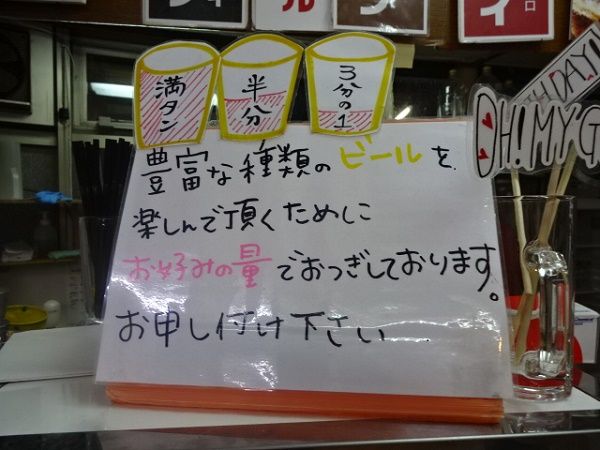 満タン
半分
3分の1
豊富な種類のビールを
楽しんで頂くために
お好みの量でおつぎしております。
お申し付け下さい
OH! MY G
HDAY!